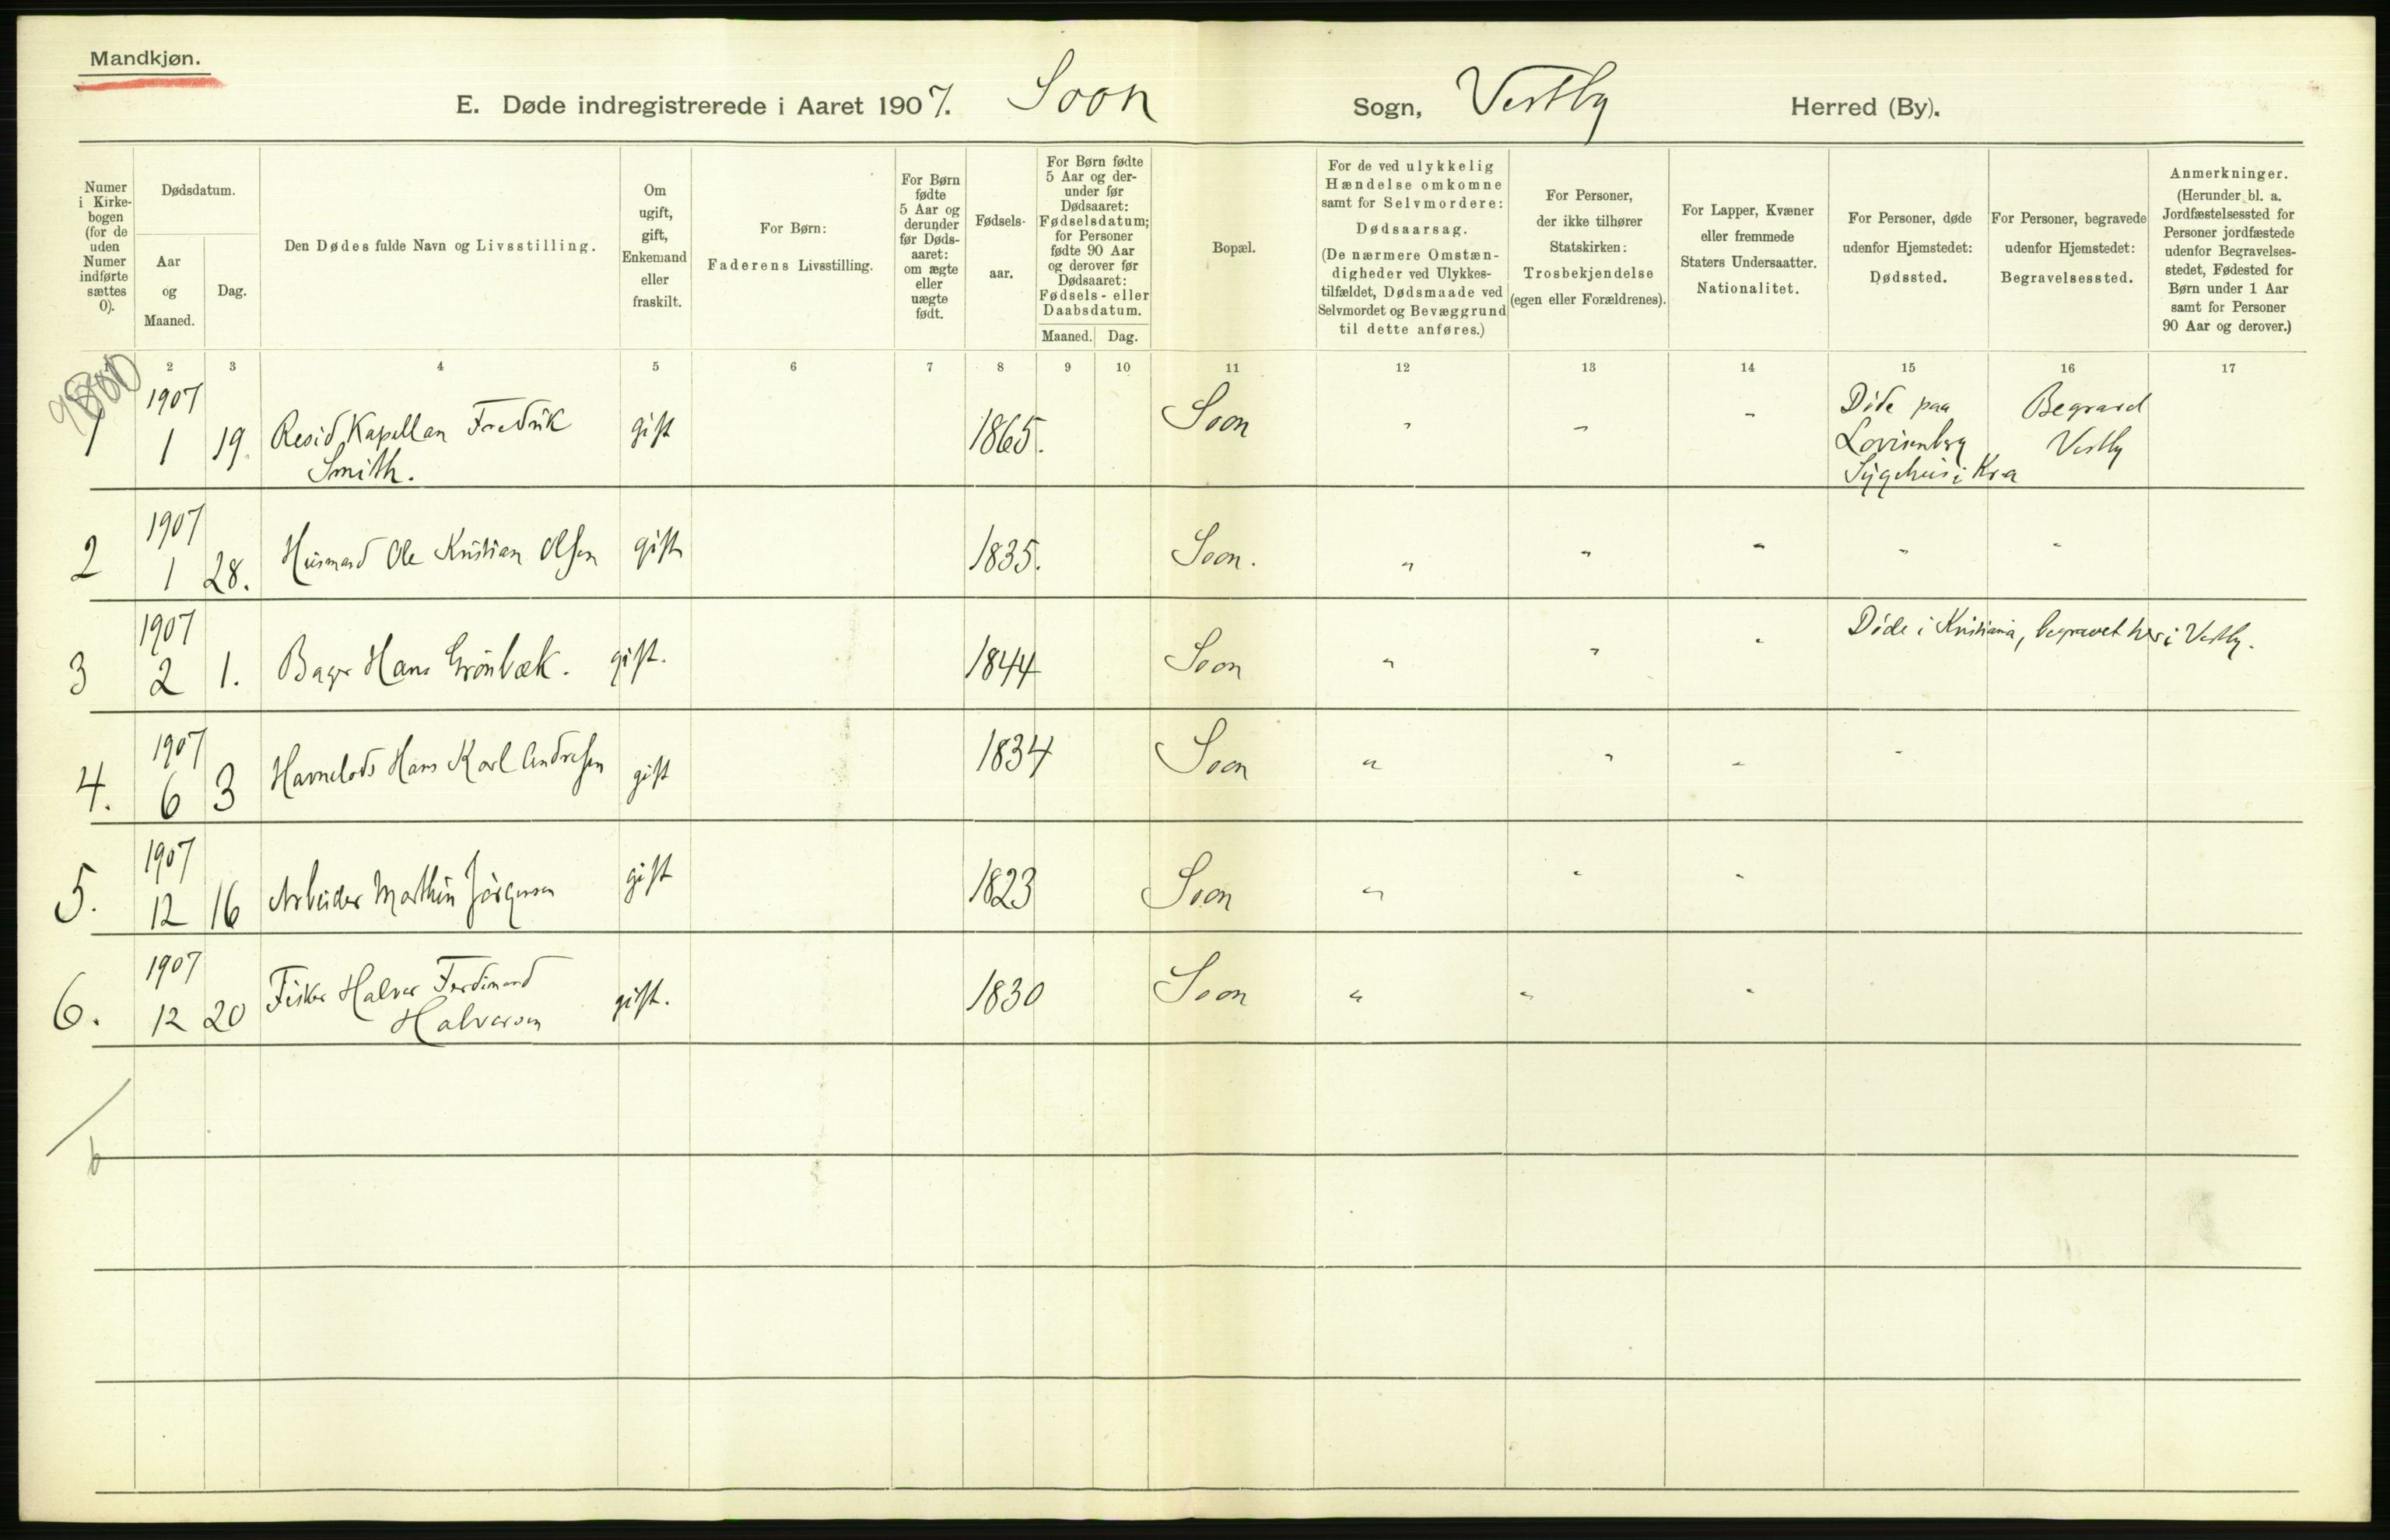 Mandkjøn.
E. Døde indregistrerede i Aaret 1907. Soon Sogn, Vestby Herred (By).
Numer i Kirke-bogen (for de uden Numer indførte sættes 0).
Dødsdatum.
Aar og Maaned.
Dag.
Den Dødes fulde Navn og Livsstilling.
Om ugift, gift, Enkemand eller fraskilt.
For Børn: Faderens Livsstilling.
For Børn fødte 5 Aar og derunder før Døds-aaret: om ægte eller uægte født.
Fødsels-aar.
For Børn fødte 5 Aar og der-under før Dødsaaret: Fødselsdatum; for Personer fødte 90 Aar og derover før Dødsaaret: Fødsels- eller Daabsdatum.
Maaned. Dag.
Bopæl.
For de ved ulykkelig Hændelse omkomne samt for Selvmordere: Dødsaarsag. (De nærmere Omstæn-digheder ved Ulykkes-tilfældet, Dødsmaade ved Selvmordet og Bevæggrund til dette anføres.)
For Personer, der ikke tilhører Statskirken: Trosbekjendelse (egen eller Forældrenes).
For Lapper, Kvæner eller fremmede Staters Undersaatter. Nationalitet.
For Personer, døde udenfor Hjemstedet: Dødssted.
For Personer, begravede udenfor Hjemstedet: Begravelsessted.
Anmerkninger. (Herunder bl. a. Jordfæstelsessted for Personer jordfæstede udenfor Begravelses-stedet, Fødested for Børn under 1 Aar samt for Personer 90 Aar og derover.)
2 3 4 5 6 7 8 9 10 11 12 13 14 15 16 17
1 1907 1 19. Resid. Kapellan Fredrik Smith. gift 1865. Soon " " " Døde paa Lovisenberg Sygehus i Kra Begraved Vestby
2 1907 1 28. Husmand Ole Kristian Olsen gift 1835. Soon. " " " " "
3 1907 2 1. Bager Hans Grønbæk. gift. 1844 Soon " " " Døde i Kristiania, begravet her i Vestby.
4. 1907 6 3 Havnelods Hans Karl Andresen gift 1834 Soon " " " "
5. 1907 12 16 Arbeider Marthin Jørgensen gift 1823 Soon " " "
6. 1907 12 20 Fisker Halvor Ferdinand Halvorsen gift. 1830 Soon " " "